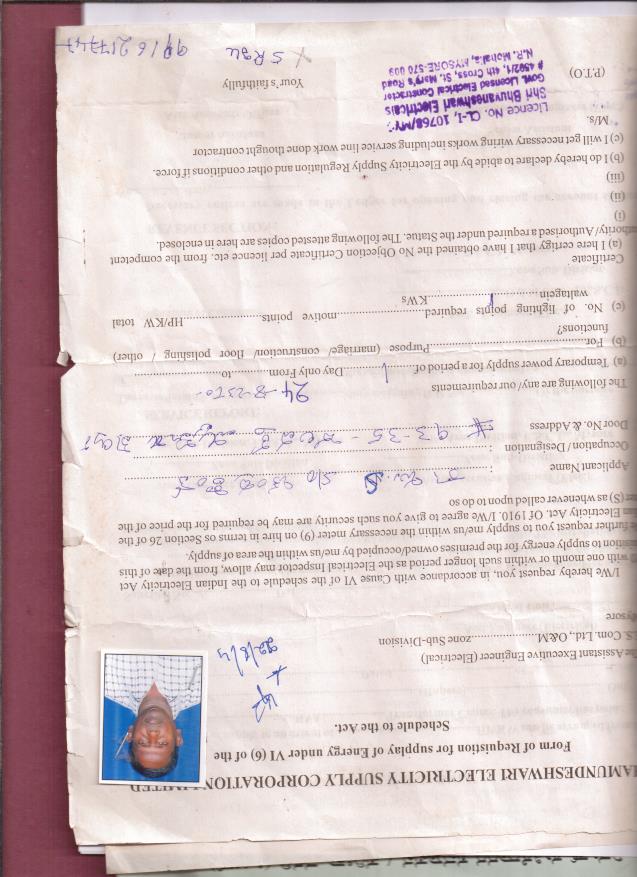 HAMUNDESHWARI ELECTRICITY SUPPLY CORPORATION LIMITED
Form of Requisition for supplay of Energy under VI (6) of the
Schedule to the Act.
22/8/
The Assistant Executive Engineer (Electrical)
Com. Ltd., O&M..............zone Sub-Division
ysore
I/We hereby request you, in accordance with Cause VI of the schedule to the Indian Electricity Act
with one month or within such longer period as the Electrical Inspector may allow, from the date of this
sition to supply energy for the premises owned/occupied by me/us within the area of supply.
further request you to supply me/us within the necessary meter (9) on hire in terms os Section 26 of the
an Electricity Act. OF 1910. I/We agree to give you such security are may be required for the price of the
er (S) as whenever called upon to do so
Applicant Name : S/o
Occupation / Designation :
Door No. & Address : # 93-35 -
The following are any/ our requirements
(a) Temporary power supply for a period of 1 Day only From..............to..............
(b) For..............Purpose (marriage/ construction/ floor polishing / other)
functions?
(c) No. of fighting points required..............motive points..............HP/KW total
waltagein..............KWs
Certificate
(a) I here certigy that I have obtained the No Objection Certificate per licence etc. from the competent
authority/ Authorised a required under the Statue. The following attested copies are here in enclosed.
(i)
(ii)
(iii)
(b) I do hereby declare to abide by the Electricity Supply Regulation and other conditions if force.
(c) I will get necessary wiring works including service line work done thought contractor
M/s.
Licence No. CL-I, 10768/MY
Shri Bhuvaneshwari Electricals
Govt. Licensed Electrical Constractor
# 4592/1, 4th Cross, St. Mary's Road
N.R. Mohalla, MYSORE-570 003
(P.T.O) Your's faithfully